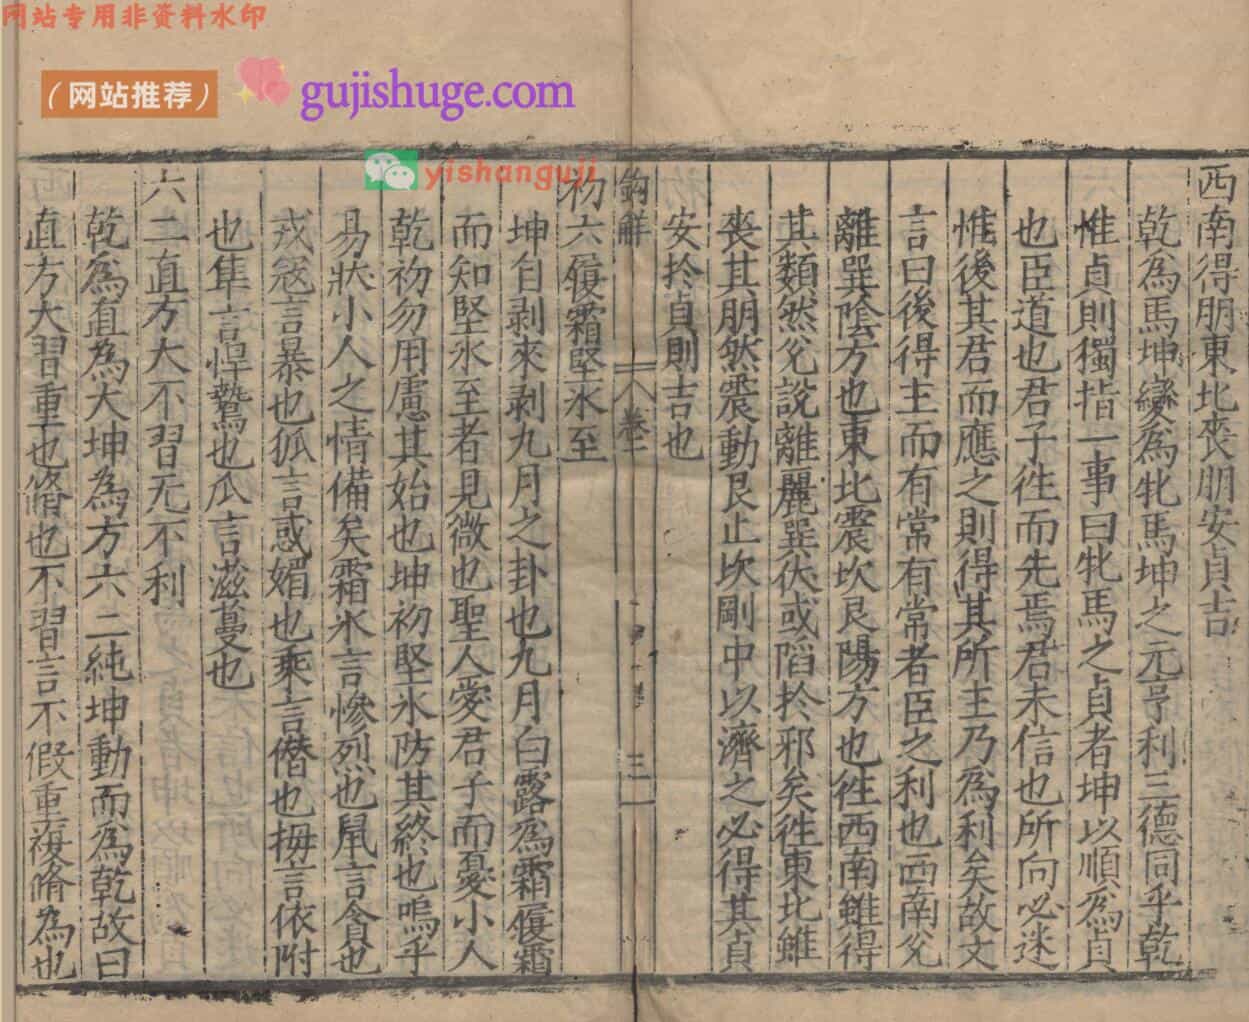 网站专用非资料水印
（网站推荐）
gujishuge.com
yishanguji
西南得朋東北喪朋安貞吉
乾為馬坤變為牝馬坤之元亨利三德同乎乾
惟貞則獨指一事曰牝馬之貞者坤以順為貞
也臣道也君子往而先焉君未信也所向必迷
惟後其君而應之則得其所主乃為利矣故文
言曰後得主而有常有常者臣之利也西南兌
離巽陰方也東北震坎艮陽方也往西南雖得
其類然兌說離麗巽伏或陷於邪矣往東北雖
喪其朋然震動艮止坎剛中以濟之必得其貞
安於貞則吉也
鈎解
卷一
三
初六履霜堅氷至
坤自剥來剥九月之卦也九月白露為霜履霜
而知堅氷至者見微也聖人愛君子而憂小人
乾初勿用慮其始也坤初堅氷防其終也嗚乎
易狀小人之情備矣霜氷言慘烈也鼠言貪也
戎寇言暴也狐言惑媚也乘言僭也拇言依附
也隼言悍鷙也瓜言滋蔓也
六二直方大不習无不利
乾為直為大坤為方六二純坤動而為乾故曰
直方大習重也脩也不習言不假重複脩為也